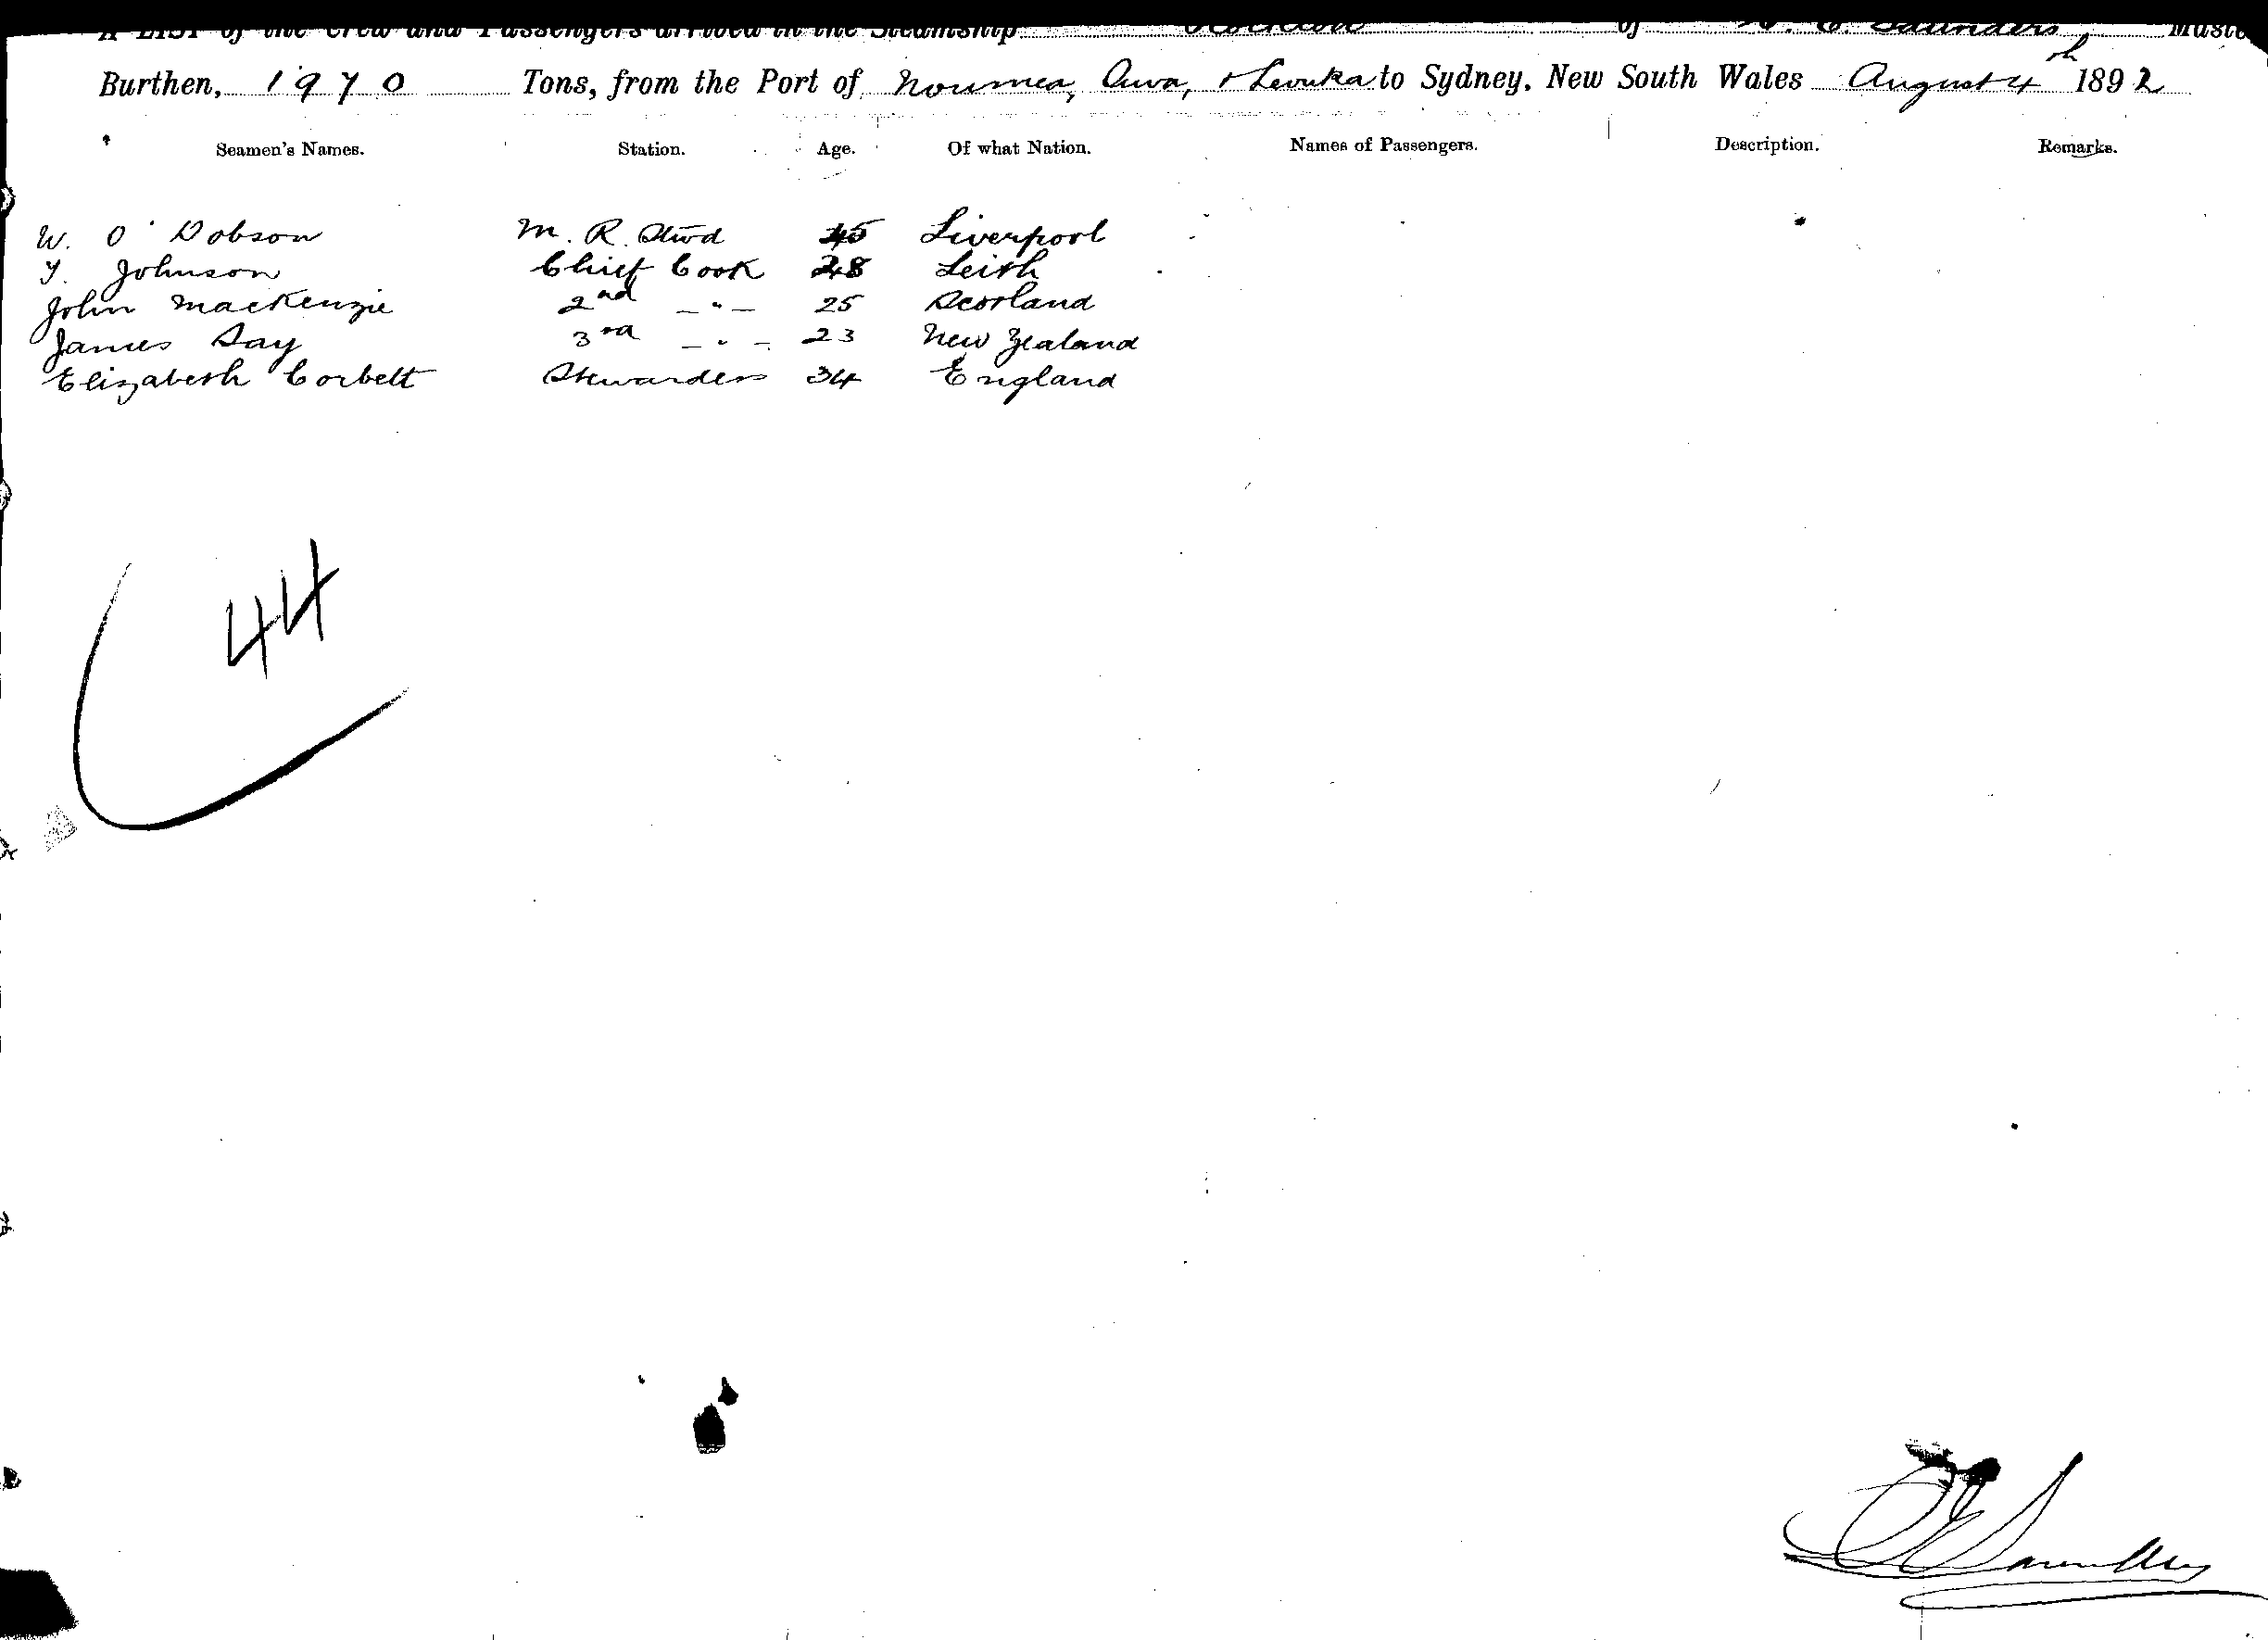 A LIST of the Crew and Passengers arrived in the Steamship of W. E. Saunders Maste
Burthen, 1970 Tons, from the Port of Noumea, Suva, & Levuka to Sydney, New South Wales August 4th 1892
Seamen's Names. Station. Age. Of what Nation. Names of Passengers. Description. Remarks.
W. O' Dobson M. R. Stwd 45 Liverpool
Y. Johnson Chief Cook 28 Leith
John MacKenzie 2nd -"- 25 Scotland
James Day 3rd -"- 23 New Zealand
Elizabeth Corbett Stewardess 34 England
44
Saunders